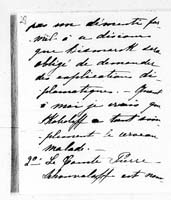 pas son démenti for
mel. à ce discours
que bismarck sera
obligé de demander
des explications di
plomatiques. - Quant
à moi je crois que
Skobeleff a tout sim
plement le cerveau
malade.
2º. Le Comte Pierre
Schouvaloff est